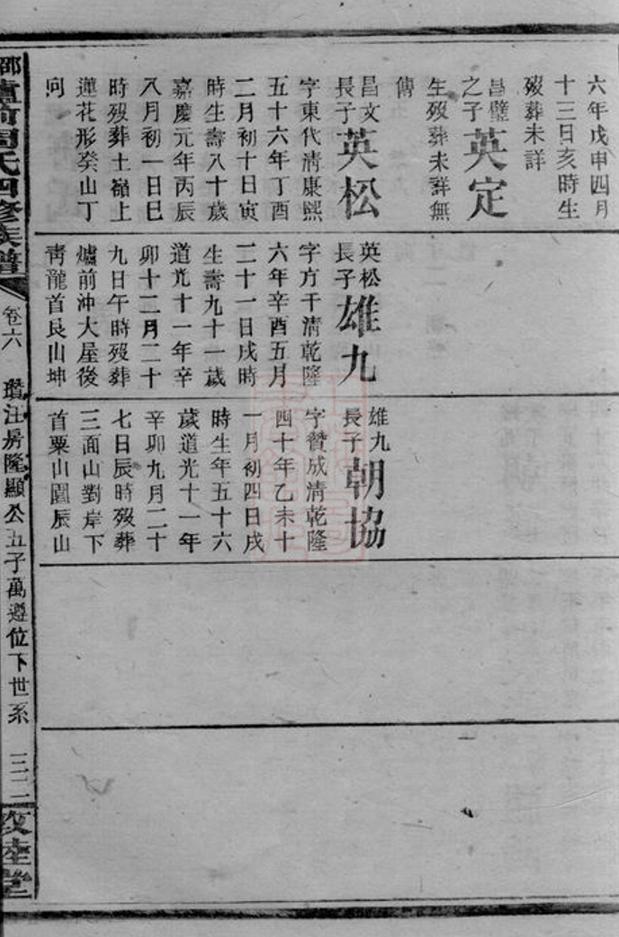 六年戊申四月
十三日亥時生
歿葬未詳
昌璧之子
英定
生歿葬未詳無
傳
昌文長子
英松
字東代清康熙
五十六年丁酉
二月初十日寅
時生壽八十歲
嘉慶元年丙辰
八月初一日巳
時歿葬土嶺上
蓮花形癸山丁
向
英松長子
雄九
字方干清乾隆
六年辛酉五月
二十一日戌時
生壽九十一歲
道光十一年辛
卯十二月二十
九日午時歿葬
爐前沖大屋後
靑龍首艮山坤
雄九長子
朝協
字贊成清乾隆
四十年乙未十
一月初四日戌
時生年五十六
歲道光十一年
辛卯九月二十
七日辰時歿葬
三面山對岸下
首粟山園辰山
周氏四修族譜
卷六
瓚汪房隆顯公五子萬遵位下世系
三二
敦睦堂